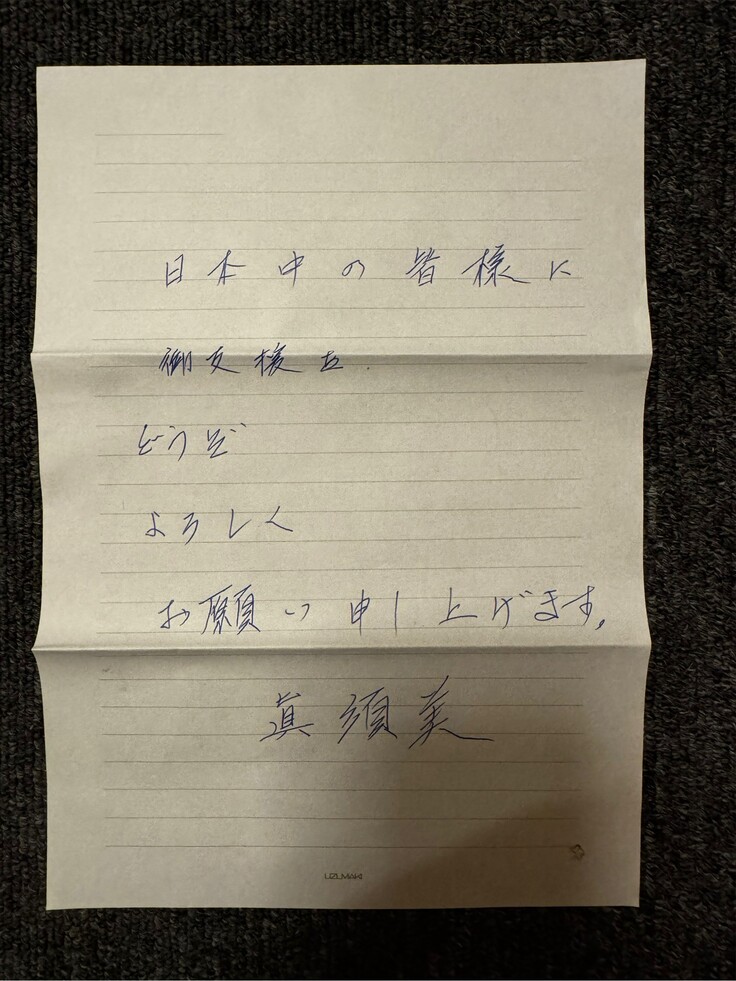 日本中の皆様に
御支援を.
どうぞ
よろしく
お願い申し上げます。
真須美